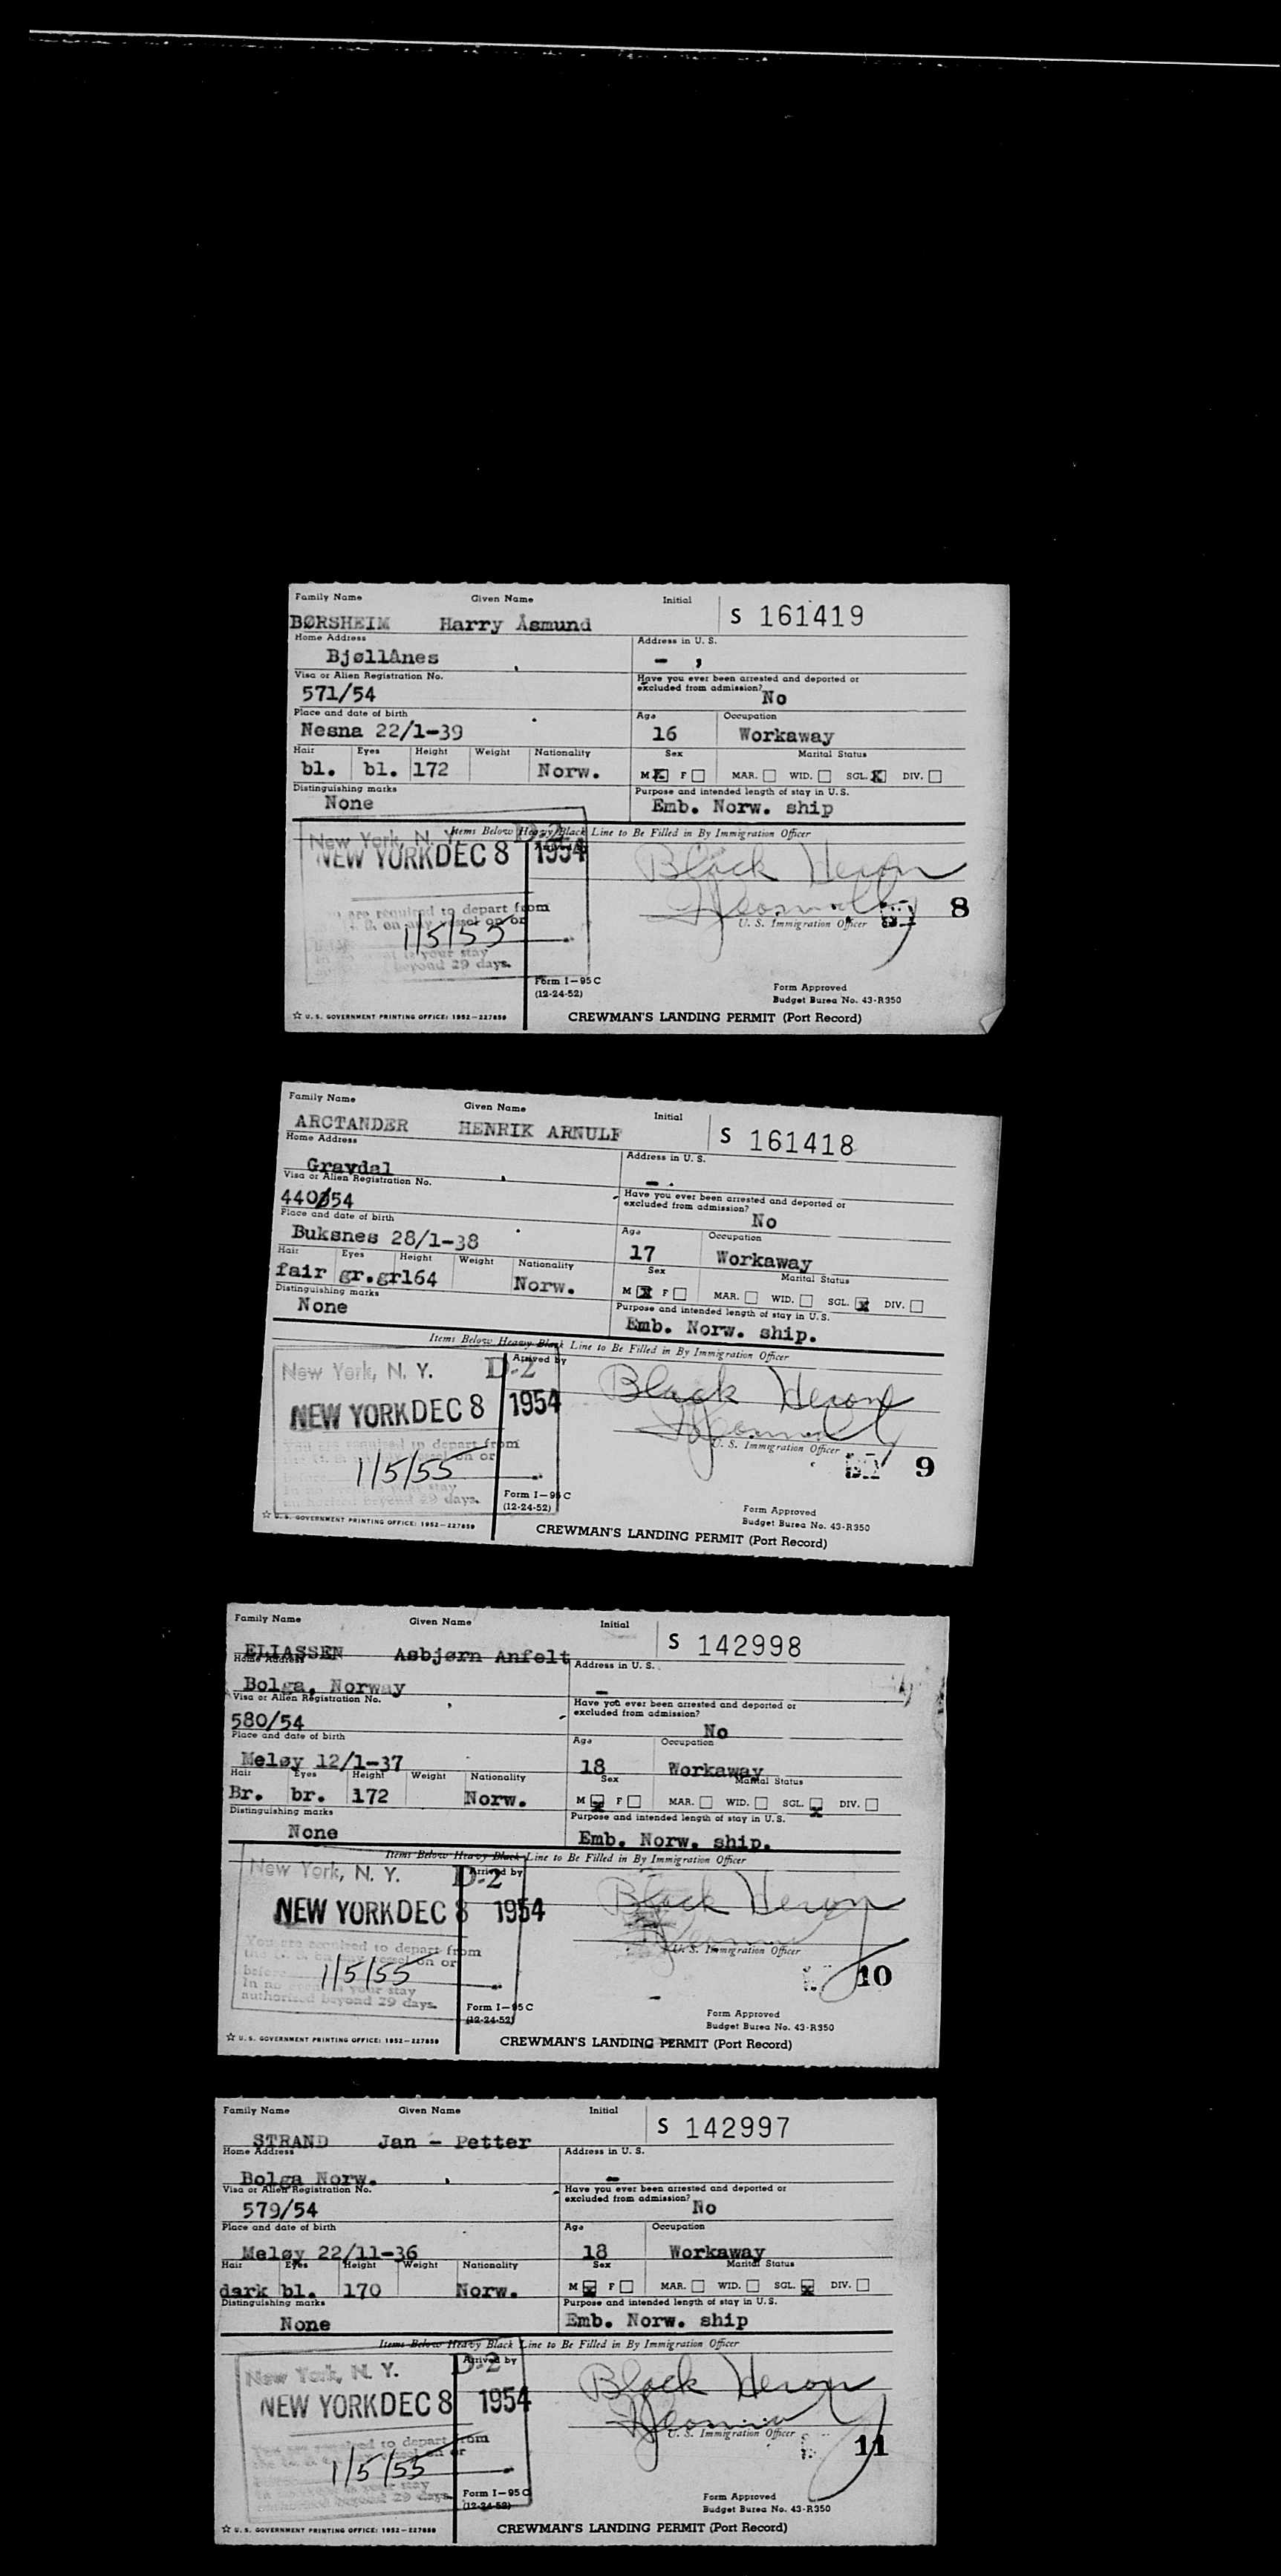 Family Name Given Name Initial S 161419
BØRSHEIM Harry Åsmund
Home Address Address in U. S.
BjøllÅnes - ,
Visa or Alien Registration No. Have you ever been arrested and deported or
excluded from admission?
571/54 No
Place and date of birth Age Occupation
Nesna 22/1-39 16 Workaway
Hair Eyes Height Weight Nationality Sex Marital Status
bl. bl. 172 Norw. M X F MAR. WID. SGL. X DIV.
Distinguishing marks Purpose and intended length of stay in U. S.
None Emb. Norw. ship
Items Below Heavy Black Line to Be Filled in By Immigration Officer
New York, N. Y. D-2
NEW YORK DEC 8 1954 Black Heron
are required to depart from
on any vessel on or U. S. Immigration Officer 8
1/5/55
your stay
beyond 29 days.
Form I-95 C
(12-24-52)
Form Approved
Budget Burea No. 43-R350
☆ U. S. GOVERNMENT PRINTING OFFICE: 1952-227859 CREWMAN'S LANDING PERMIT (Port Record)
Family Name Given Name Initial S 161418
ARCTANDER HENRIK ARNULF
Home Address Address in U. S.
Gravdal - .
Visa or Alien Registration No. Have you ever been arrested and deported or
excluded from admission?
440/54 No
Place and date of birth Age Occupation
Buksnes 28/1-38 17 Workaway
Hair Eyes Height Weight Nationality Sex Marital Status
fair gr.gr164 Norw. M X F MAR. WID. SGL. X DIV.
Distinguishing marks Purpose and intended length of stay in U. S.
None Emb. Norw. ship.
Items Below Heavy Black Line to Be Filled in By Immigration Officer
New York, N. Y. D-2 Arrived by
NEW YORK DEC 8 1954 Black Heron
You are required to depart from
the U. S. on any vessel on or U. S. Immigration Officer 9
before 1/5/55
In no event is your stay
authorized beyond 29 days.
Form I-95 C
(12-24-52)
Form Approved
Budget Burea No. 43-R350
☆ U. S. GOVERNMENT PRINTING OFFICE: 1952-227859 CREWMAN'S LANDING PERMIT (Port Record)
Family Name Given Name Initial S 142998
ELIASSEN Asbjørn Anfelt
Home Address Address in U. S.
Bolga, Norway -
Visa or Alien Registration No. Have you ever been arrested and deported or
excluded from admission?
580/54 No
Place and date of birth Age Occupation
Meløy 12/1-37 18 Workaway
Hair Eyes Height Weight Nationality Sex Marital Status
Br. br. 172 Norw. M X F MAR. WID. SGL. X DIV.
Distinguishing marks Purpose and intended length of stay in U. S.
None Emb. Norw. ship.
Items Below Heavy Black Line to Be Filled in By Immigration Officer
New York, N. Y. D-2 Arrived by
NEW YORK DEC 8 1954 Black Heron
You are required to depart from
the U. S. on any vessel on or U. S. Immigration Officer
before 1/5/55 10
In no event is your stay
authorized beyond 29 days.
Form I-95 C
(12-24-52)
Form Approved
Budget Burea No. 43-R350
☆ U. S. GOVERNMENT PRINTING OFFICE: 1952-227859 CREWMAN'S LANDING PERMIT (Port Record)
Family Name Given Name Initial S 142997
STRAND Jan - Petter
Home Address Address in U. S.
Bolga Norw. -
Visa or Alien Registration No. Have you ever been arrested and deported or
excluded from admission?
579/54 No
Place and date of birth Age Occupation
Meløy 22/11-36 18 Workaway
Hair Eyes Height Weight Nationality Sex Marital Status
dark bl. 170 Norw. M X F MAR. WID. SGL. X DIV.
Distinguishing marks Purpose and intended length of stay in U. S.
None Emb. Norw. ship
Items Below Heavy Black Line to Be Filled in By Immigration Officer
New York, N. Y. D-2 Arrived by
NEW YORK DEC 8 1954 Black Heron
You are required to depart from
the U. S. on any vessel on or U. S. Immigration Officer 11
1/5/55
your stay
authorized beyond 29 days.
Form I-95 C
(12-24-52)
Form Approved
Budget Burea No. 43-R350
☆ U. S. GOVERNMENT PRINTING OFFICE: 1952-227859 CREWMAN'S LANDING PERMIT (Port Record)